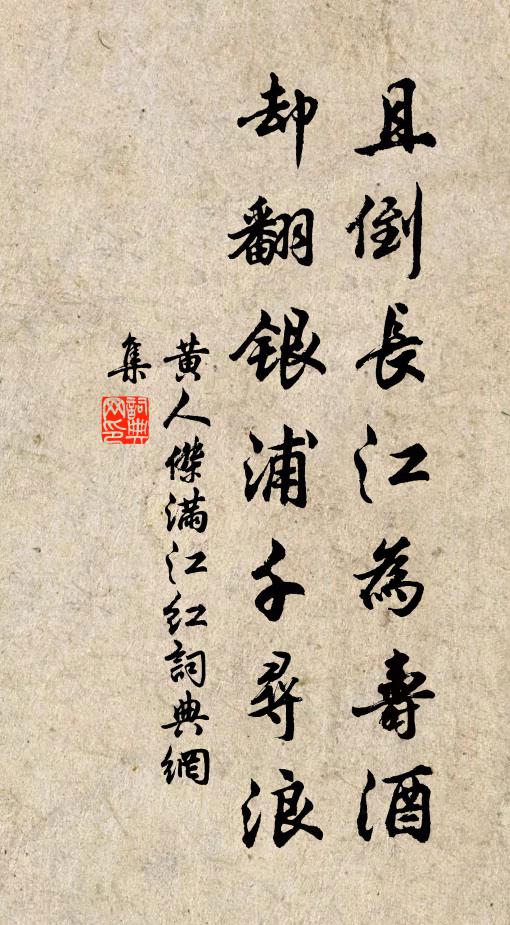 且倒長江為壽酒
却翻銀浦千尋浪
黄人傑滿江红詞典網
集
詞典網印